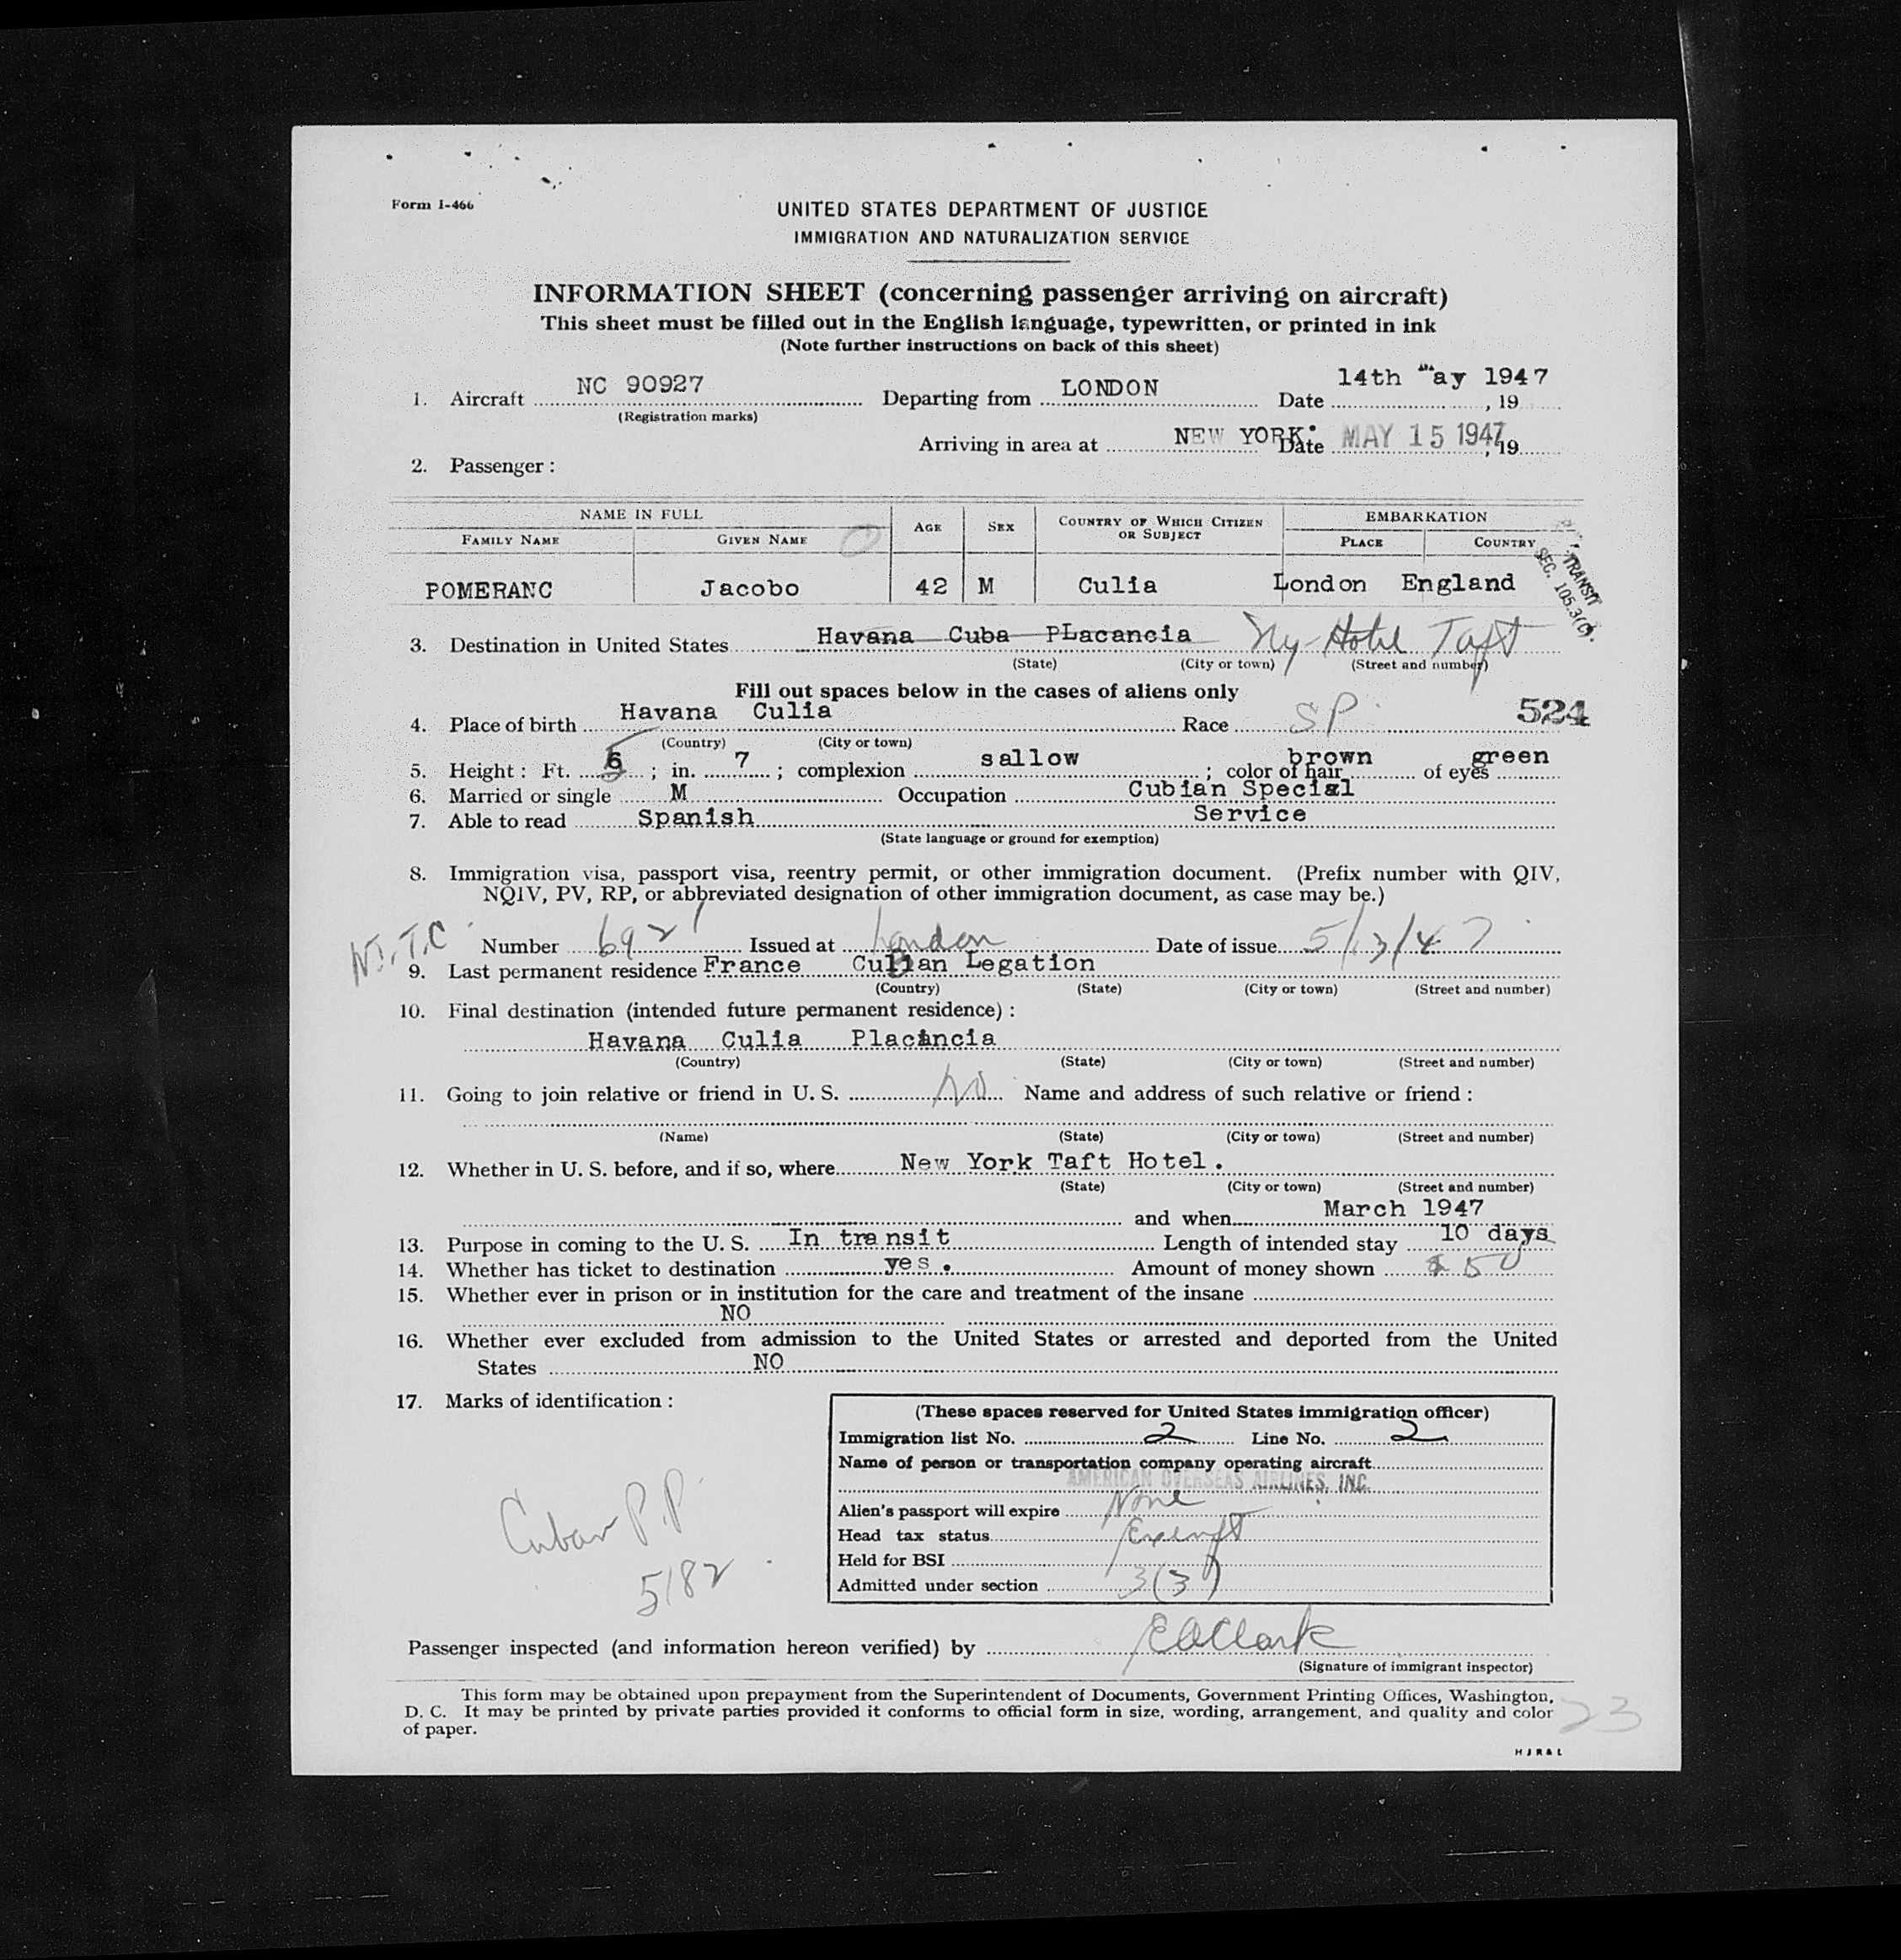 Form I-466
UNITED STATES DEPARTMENT OF JUSTICE
IMMIGRATION AND NATURALIZATION SERVICE
INFORMATION SHEET (concerning passenger arriving on aircraft)
This sheet must be filled out in the English language, typewritten, or printed in ink
(Note further instructions on back of this sheet)
1. Aircraft NC 90927 Departing from LONDON Date 14th May 1947, 19
(Registration marks)
Arriving in area at NEW YORK. Date MAY 15 1947, 19
2. Passenger:
NAME IN FULL AGE SEX COUNTRY OF WHICH CITIZEN OR SUBJECT EMBARKATION
FAMILY NAME GIVEN NAME PLACE COUNTRY
POMERANC Jacobo 42 M Culia London England
TRANSIT
SEC. 105.3(C).
3. Destination in United States Havana Cuba PLacancia Ny-Hotel Taft
(State) (City or town) (Street and number)
Fill out spaces below in the cases of aliens only
524
4. Place of birth Havana Culia Race SP.
(Country) (City or town)
5. Height: Ft. 5; in. 7; complexion sallow; color of hair brown of eyes green
6. Married or single M Occupation Cubian Special
7. Able to read Spanish Service
(State language or ground for exemption)
8. Immigration visa, passport visa, reentry permit, or other immigration document. (Prefix number with QIV,
NQIV, PV, RP, or abbreviated designation of other immigration document, as case may be.)
Number 692 Issued at London Date of issue 5/13/47
9. Last permanent residence France Cuban Legation
(Country) (State) (City or town) (Street and number)
10. Final destination (intended future permanent residence):
Havana Culia Placancia
(Country) (State) (City or town) (Street and number)
11. Going to join relative or friend in U. S. No Name and address of such relative or friend:
(Name) (State) (City or town) (Street and number)
12. Whether in U. S. before, and if so, where New York Taft Hotel.
(State) (City or town) (Street and number)
and when March 1947
13. Purpose in coming to the U. S. In transit Length of intended stay 10 days
14. Whether has ticket to destination yes. Amount of money shown $50
15. Whether ever in prison or in institution for the care and treatment of the insane
NO
16. Whether ever excluded from admission to the United States or arrested and deported from the United
States NO
17. Marks of identification:
Cuban P.P.
5182
(These spaces reserved for United States immigration officer)
Immigration list No. 2 Line No. 2
Name of person or transportation company operating aircraft
AMERICAN OVERSEAS AIRLINES, INC.
Alien's passport will expire None
Head tax status Exempt
Held for BSI
Admitted under section 3(3)
Passenger inspected (and information hereon verified) by EAClark
(Signature of immigrant inspector)
This form may be obtained upon prepayment from the Superintendent of Documents, Government Printing Offices, Washington,
D. C. It may be printed by private parties provided it conforms to official form in size, wording, arrangement, and quality and color
of paper.
23
H J R & L